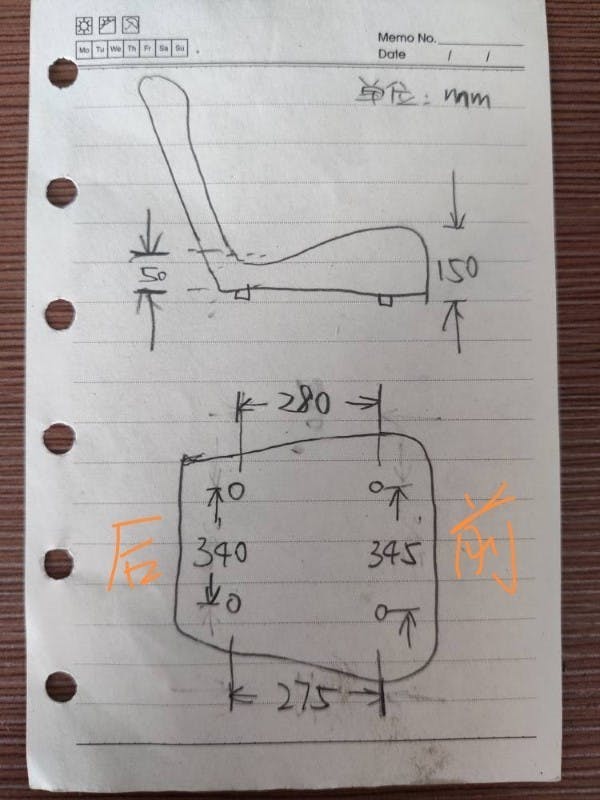 Memo No.
Mo Tu We Th Fr Sa Su
Date / /
单位: mm
50
150
280
后
340
345
前
275